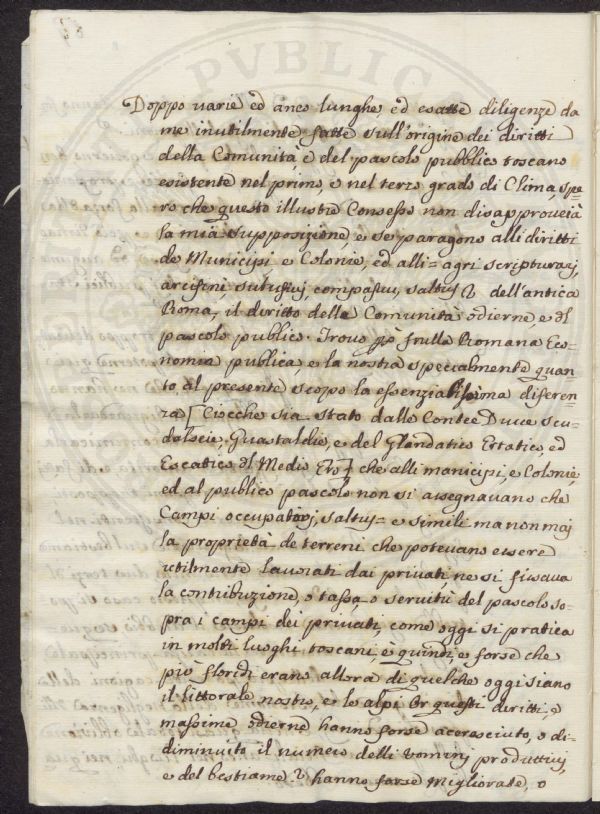 Doppo varie ed anco lunghe, ed esatte diligenze da
me inutilmente fatte sull'origine dei diritti
della Comunità, e del pascolo pubblico toscano
esistente nel primo, e nel terzo grado di Clima, spe-
ro che questo illustre Consesso non disapproverà
la mia supposizione, e se paragono alli diritti
de Municipi e Colonie, ed alli= agri scripturarj,
arcifinj, subsicivj, compascui, saltus & dell'antica
Roma, il diritto della Comunità odierne, e del
pascolo publico. Trovo però fralla Romana Eco-
nomia publica, e la nostra specialmente quan-
to al presente scopo la essenzialissima diferen-
za [Ciocche sia stato dalle Contee Duce Scu-
dalscie, Guastaldie, e del Glandatico Erbatico, ed
Escatico del Medio Evo] che alli municipi, e Colonie,
ed al publico pascolo non si assegnavano che
Campi occupatorj, saltus= e simili ma non maj
la proprietà de terreni che potevano essere
utilmente lavorati dai privati ne si fissava
la contribuzione, o tassa, o servitù del pascolo so-
pra i campi dei privati, come oggi si pratica
in molti luoghi toscani, e quindi e forse che
più floridi erano allora di quelche oggi siano
il littorale nostro, e le alpi Or questi diritti, e
massime odierne hanno forse accresciuto, o di-
diminuito il numero delli uomini produttivj,
e del bestiame & hanno forse migliorate, o